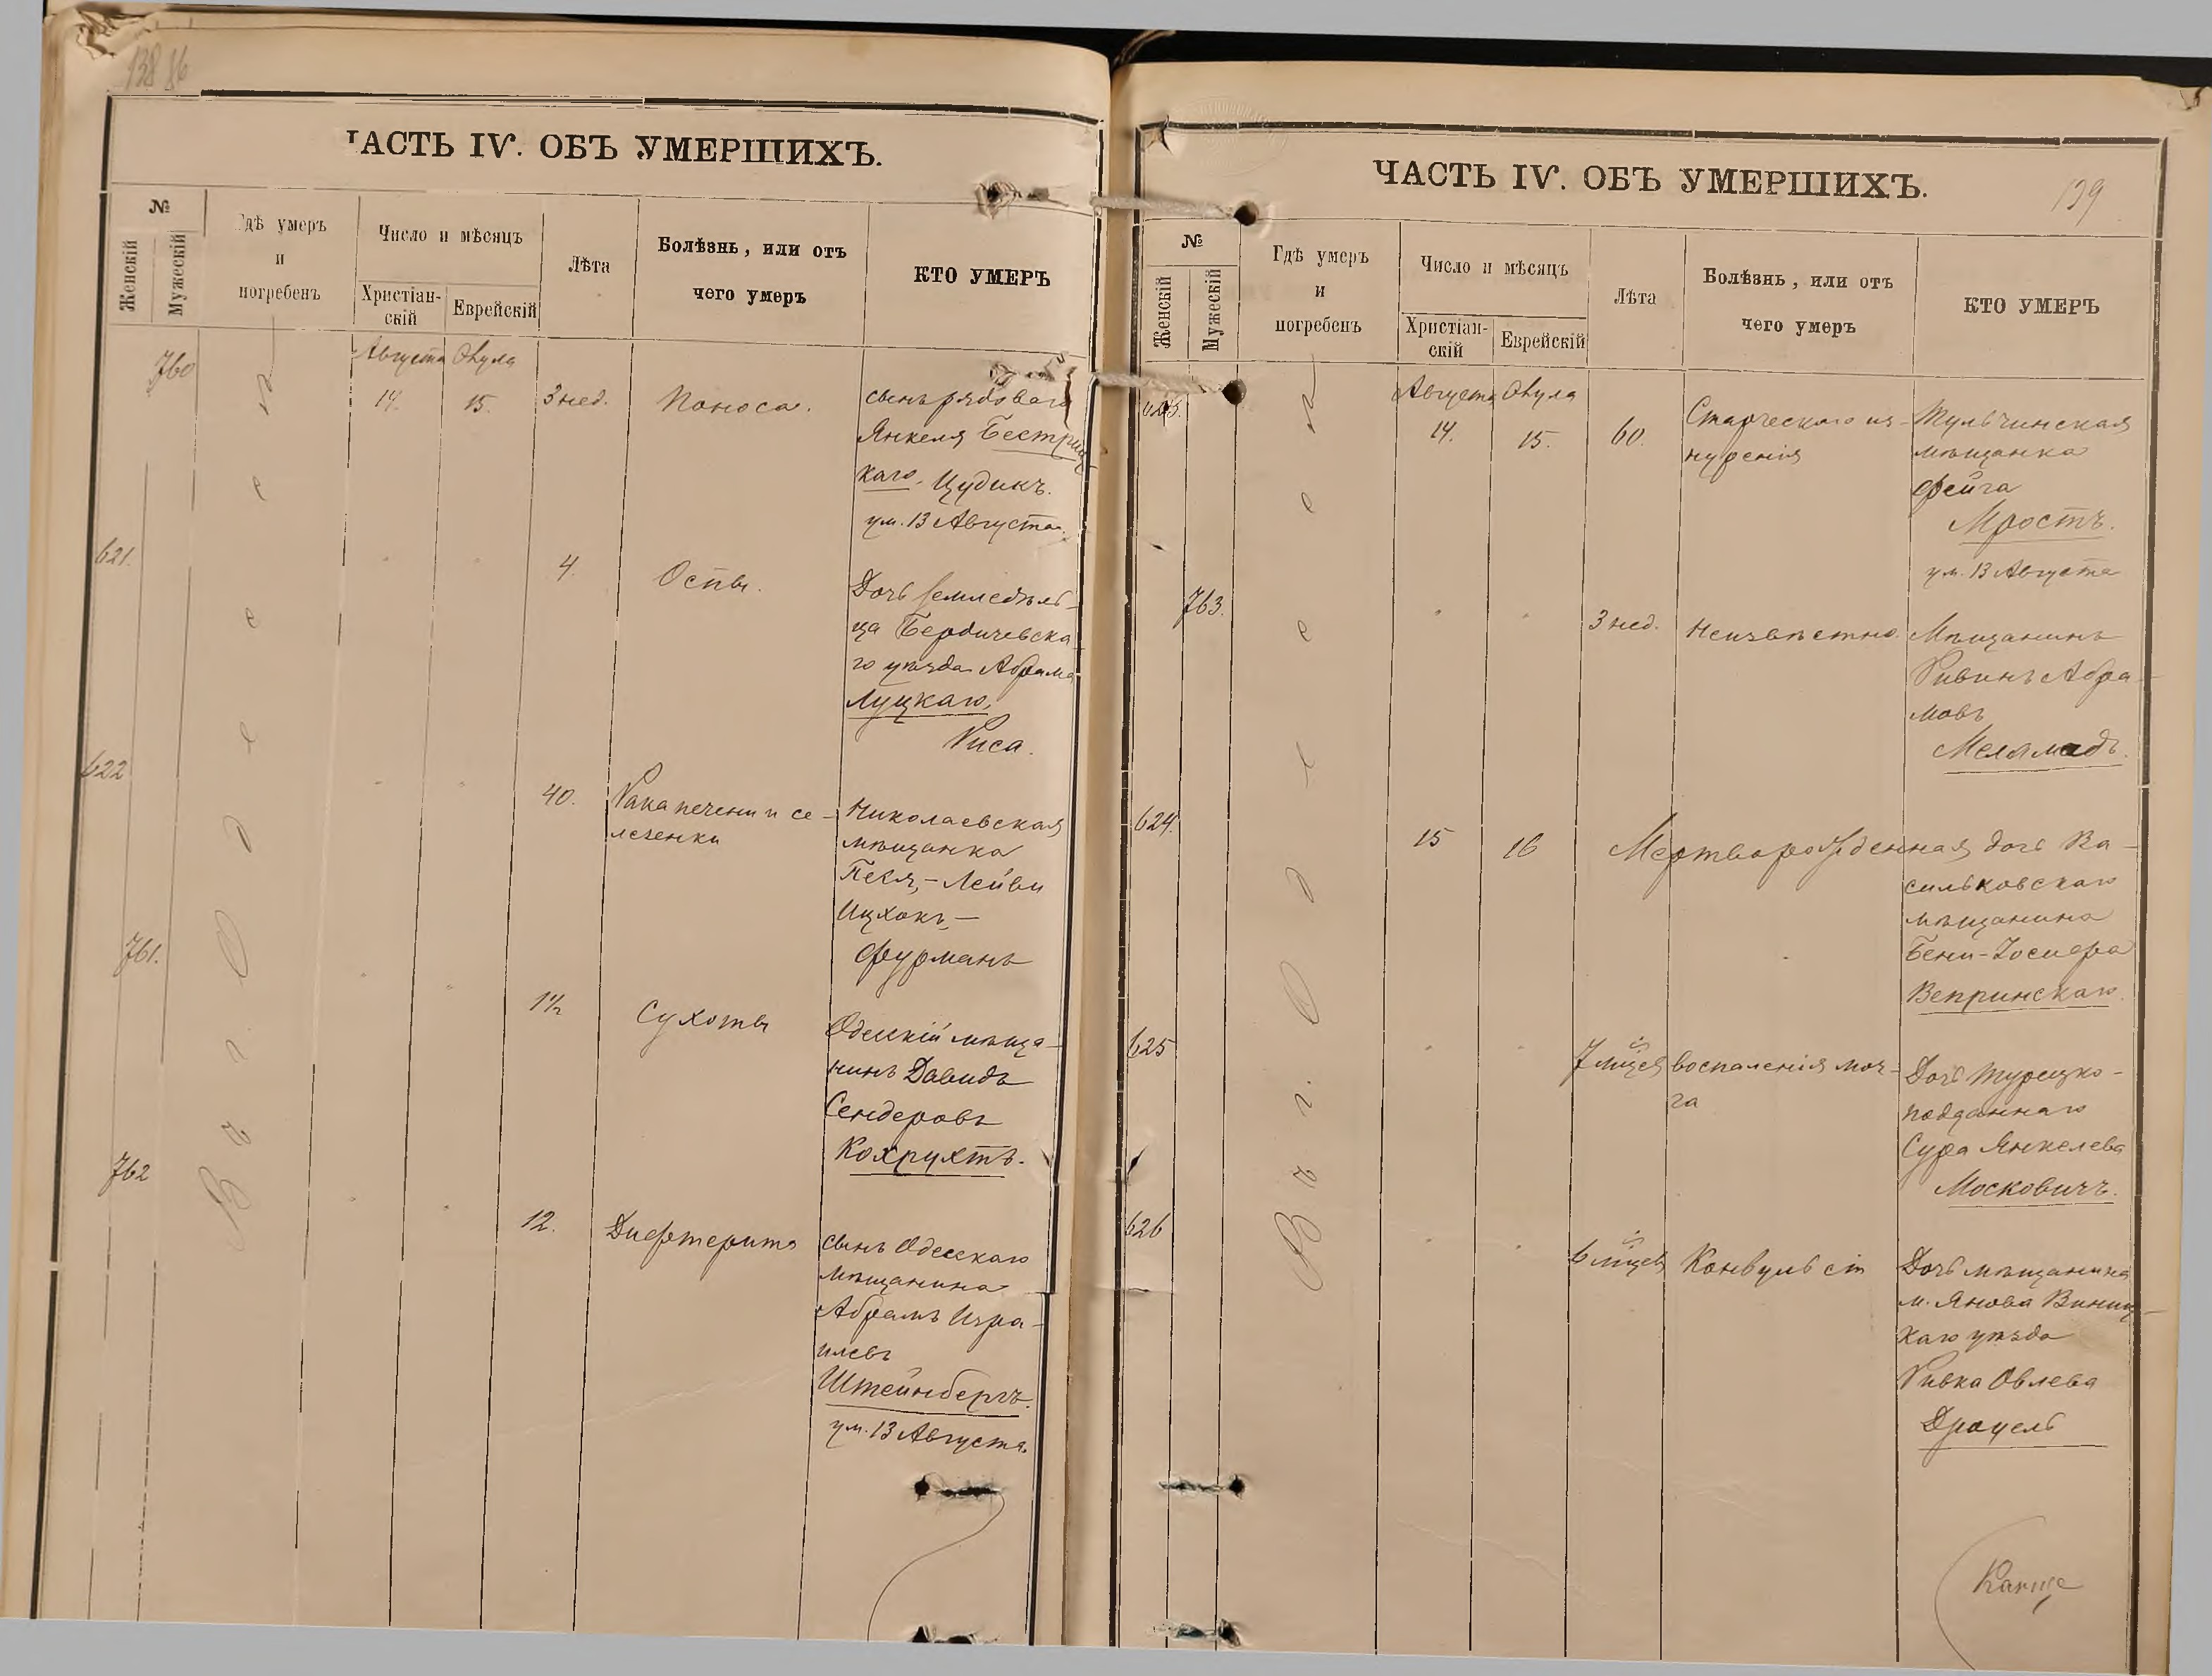 138 86
ЧАСТЬ IV. ОБЪ УМЕРШИХЪ.
№
Женскій
Мужескій
Гдѣ умеръ
и
погребенъ
Число и мѣсяцъ
Христіан-
скій
Еврейскій
Лѣта
Болѣзнь, или отъ
чего умеръ
КТО УМЕРЪ
Въ г. Одессѣ
Августа
760
14.
15.
3 нед.
Поноса.
сынъ рядоваго
Янкеля Бестриц
каго, Цудикъ.
ум. 13 Августа.
621.
4.
Оспы.
Дочь земледѣль-
ца Бердичевска
го уѣзда Абрама
Луцкаго,
Риса.
622
40.
Рака печени и се-
лезенки
Николаевская
мѣщанка
Песя,-Лейви
Ицхокъ,-
Фурманъ
761.
1½
Сухоты
Одесскій мѣща-
нинъ Давидъ
Сендеровъ
Кохрухтъ.
762
12.
Дифтерита
сынъ Одесскаго
мѣщанина
Абрамъ Изра-
илевъ
Штейнбергъ.
ум. 13 Августа.
ЧАСТЬ IV. ОБЪ УМЕРШИХЪ.
139
№
Женскій
Мужескій
Гдѣ умеръ
и
погребенъ
Число и мѣсяцъ
Христіан-
скій
Еврейскій
Лѣта
Болѣзнь, или отъ
чего умеръ
КТО УМЕРЪ
Въ г. Одессѣ
Августа
623.
14.
15.
60.
Старческаго из-
нуренія
Тульчинская
мѣщанка
Фейга
Мростъ.
ум. 13 Августа
763.
3 нед.
Неизвѣстно.
Мѣщанинъ
Ривинъ Абра-
мовъ
Меламедъ.
624.
15
16
Мертворожденная дочь Ва-
сильковскаго
мѣщанина
Бени-Іосифа
Вепринскаго.
625
7 мѣсце
воспаленія моз-
га
Дочь турецко-
подданнаго
Сура Янкелева
Московичъ.
626
6 мѣсце
Конвульсіи
Дочь мѣщанина
м. Янова Виниц-
каго уѣзда
Ривка Овлева
Дроцель